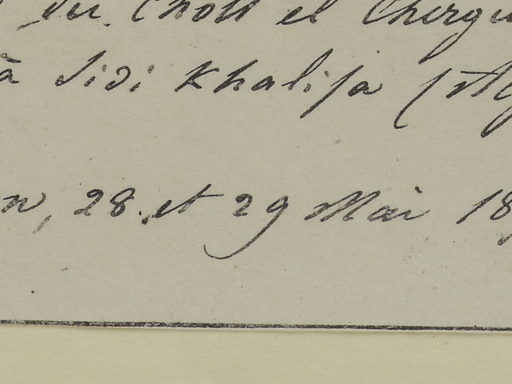 du Chott el Chergu
à Sidi Khalifa (Alg
n, 28 et 29 Mai 18